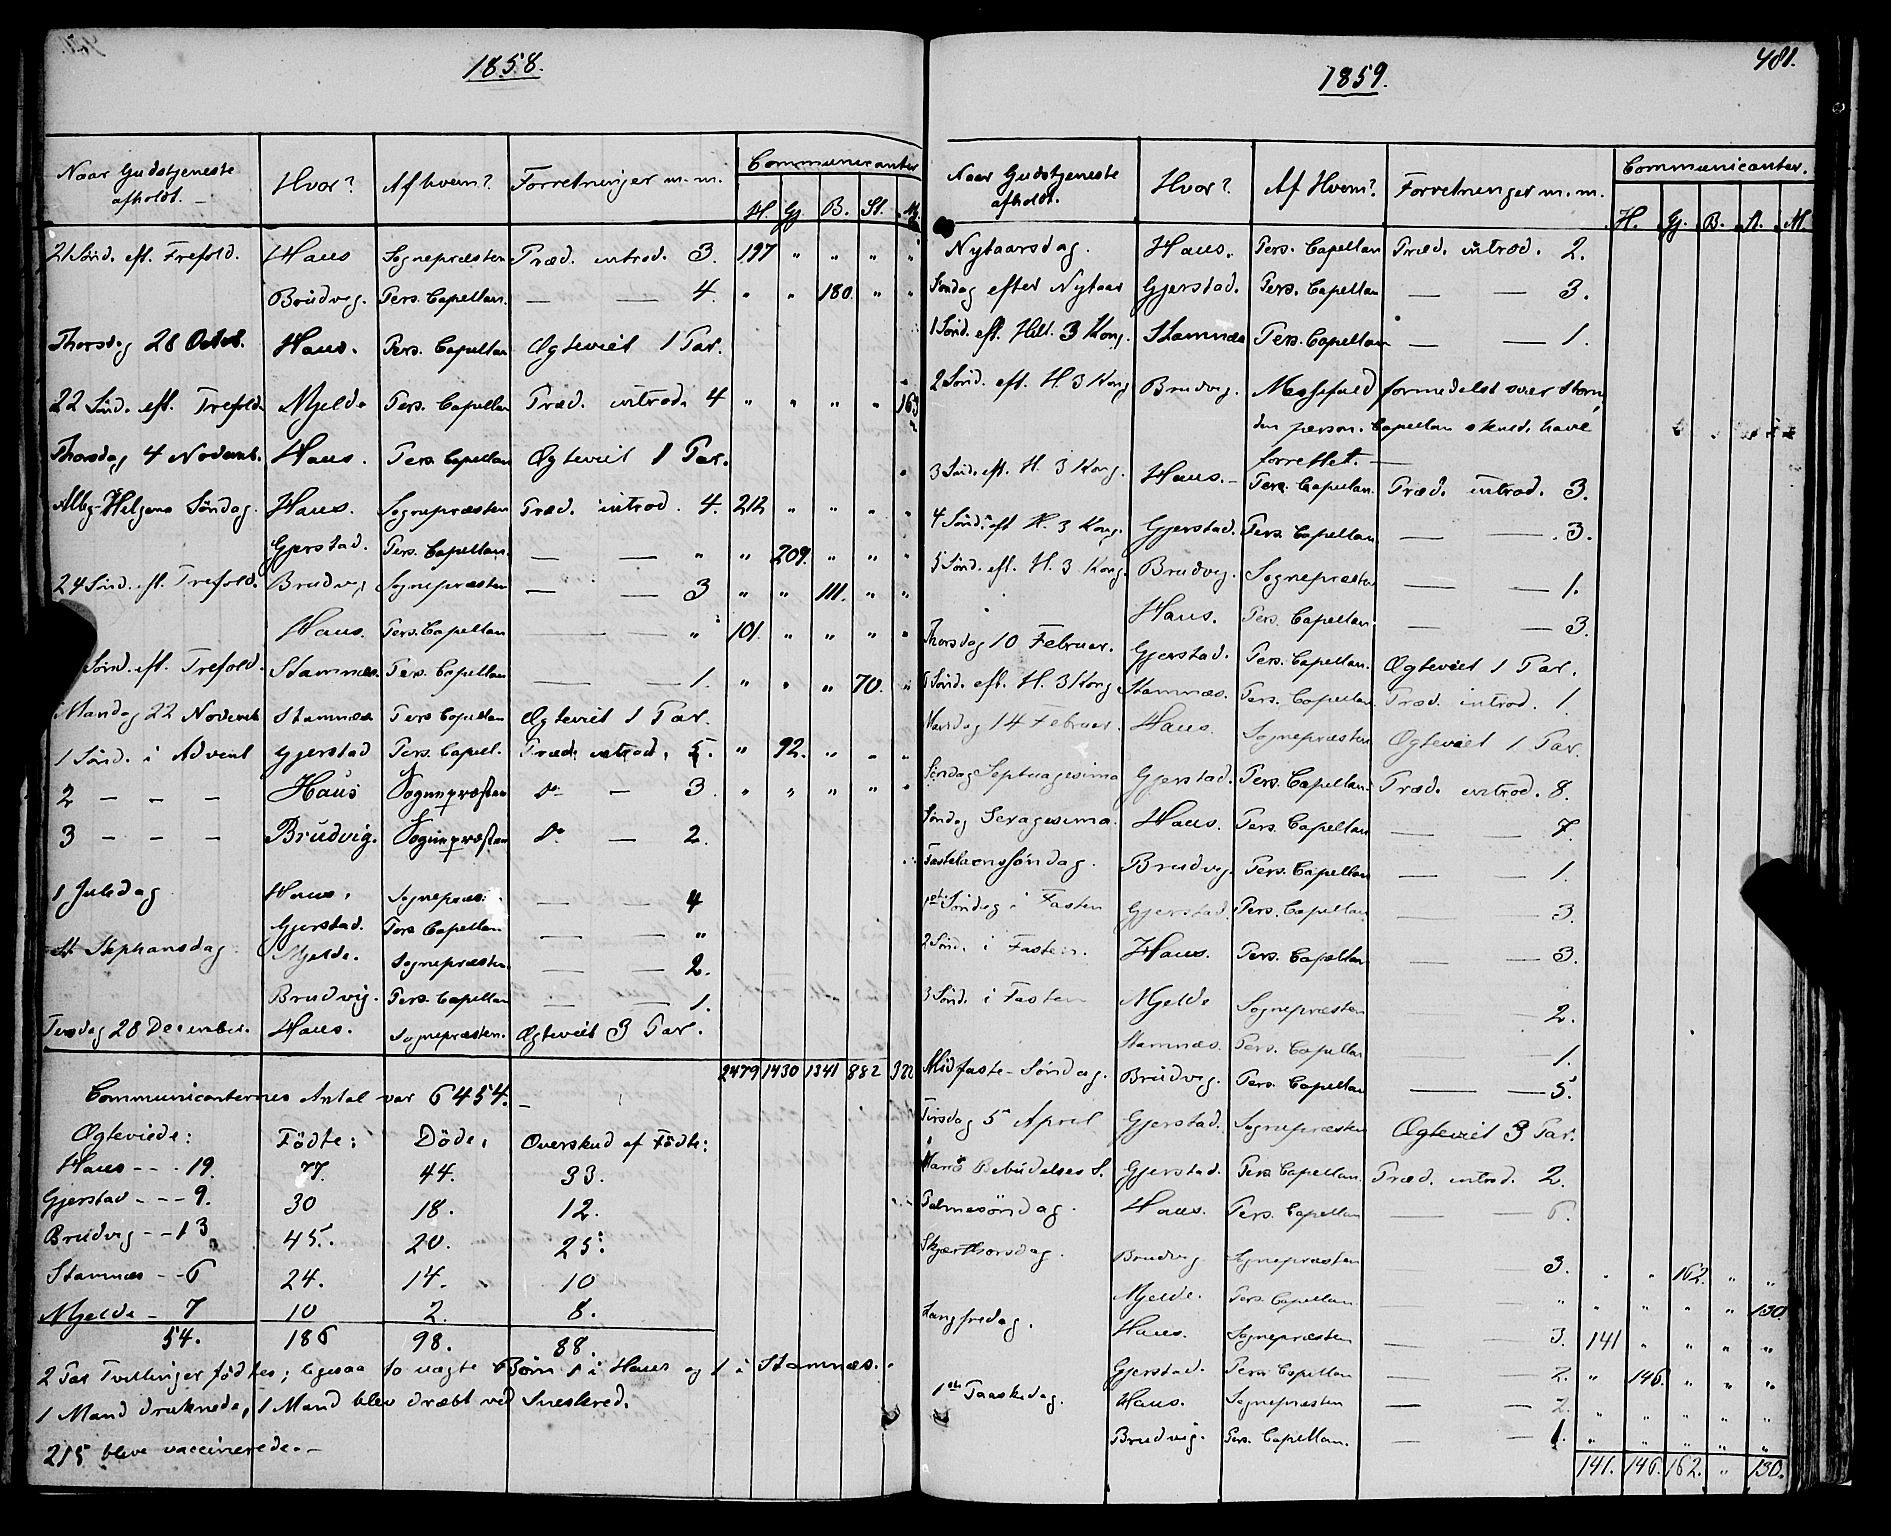 1858.
Naar Gudstjeneste afholdt. Hvor? Af hvem? Forretninger m. m. Communicanter
H. Gj. B. St. M.
21 Sönd. eft. Trefold. Haus Sognepræsten Præd. introd. 3. 197 " " " "
Brudvig. Pers. Capellan. — — 4. " " 180. " "
Thorsdag 28 Octob. Haus. Pers. Capellan Ægteviet 1 Par.
22 Sönd. eft. Trefold. Mjelde Pers. Capellan Præd. introd. 4 " " " " 163
Thorsdag 4 Novemb. Haus. Pers. Capellan Ægteviet 1 Par.
Alle-Helgens Söndag. Haus. Sognepræsten Præd. introd. 4. 212 " " " "
Gjerstad. Pers. Capellan. — — " " 209. " " "
24 Sönd. eft. Trefold. Brudvig Sognepræsten — — 3 " " 111. " "
Haus. Pers. Capellan — — " 101. " " " "
Sönd. eft. Trefold. Stamnæs. Pers. Capellan — — 1. " " " 70. "
Mandag 22 Novemb Stamnæs Pers Capellan Ægteviet 1 Par.
1 Sönd. i Advent Gjerstad Pers. Capell. Præd. introd. 5. " 92. " " "
2 — — — Haus Sognepræsten do — 3. " " " " "
3 — — — Brudvig. Sognepræsten do — 2.
1 Juledag Haus. Sognepræs. — — 4
Gjerstad. Pers Capellan — — "
St Stephansdag. Mjelde. Sognepræsten. — — 2.
Brudvig. Pers. Capellan — — 1.
Tirsdag 28 December. Haus. Sognepræsten. Ægteviet 3 Par.
2479 1430 1341 882 322
Communicanternes Antal var 6454. —
Ægteviede: Födte: Döde: Overskud af Födte:
Haus - - - 19. 77. 44. 33.
Gjerstad - - - 9. 30 18. 12.
Brudvig - - 13 45. 20. 25.
Stamnæs - - 6 24. 14. 10
Mjelde - 7 10 2. 8.
54. 186 98. 88.
2 Par Tvillinger födtes; ligesaa to uægte Börn 1 i Haus og 1 i Stamnæs.
1 Mand druknede, 1 Mand blev dræbt ved Sneskred.
215 bleve vaccinerede. —
1859.
481.
Naar Gudstjeneste afholdt. Hvor? Af Hvem? Forretninger m. m. Communicanter.
H. Gj. B. St. M.
Nytaarsdag. Haus. Pers. Capellan Præd. introd. 2.
Söndag efter Nytaar Gjerstad. Pers. Capellan — — 3.
1 Sönd. eft. Hell. 3 Kong. Stamnæs Pers. Capellan — — 1.
2 Sönd. eft. H. 3 Kong Brudvig. Messefald formedelst svær Storm,
den person. Capellan skulde have
forrettet. —
3 Sönd. eft. H. 3 Kong. Haus. - Pers. Capellan. Præd. introd. 3.
4 Sönd. eft H. 3 Kong. Gjerstad. Pers. Capellan — — 3.
5 Sönd. eft. H. 3 Kong. Brudvig. Sognepræsten — — 1.
Haus. Pers. Capellan. — — 3.
Thorsdag 10 Februar. Gjerstad. Pers. Capellan. Ægteviet 1 Par.
Sönd. eft. H. 3 Kong Stamnæs. Pers. Capellan. Præd. introd. 1.
Mandag 14 Februar. Haus. Sognepræsten Ægteviet 1 Par.
Söndag Septuagesima Gjerstad. Pers. Capellan. Præd. introd. 8.
Söndag Sexagesima. Haus. Pers. Capellan — — 7.
Fastelavnssöndag. Brudvig Pers. Capellan — — 1.
1ste Söndag i Fasten Gjerstad. Pers. Capellan — — 3.
2 Sönd. i Fasten. Haus. Pers. Capellan — — 3.
3 Sönd. i Fasten Mjelde Sognepræsten — — 2.
Stamnæs. Pers. Capellan — — 1.
Midfaste-Söndag. Brudvig. Pers. Capellan — — 5.
Tirsdag 5 April Gjerstad. Sognepræsten Ægteviet 3 Par.
Mariæ Bebudelses S. Gjerstad. Pers Capellan. Præd. introd. 2.
Palmesöndag. Haus. Pers. Capellan — — 6.
Skjærthorsdag. Brudvig Sognepræsten — — 3. " " 162. " "
Mjelde. Pers. Capellan. " " " " " 130.
Langfredag. Haus. Sognepræsten — — 3. 141 " " " "
Gjerstad. Pers. Capellan — — 2. " 146. " " "
1ste Paaskedag. Haus. Sognepræsten — — 2. " " " " "
Brudvig. Pers. Capellan. — — 1. " " " " "
141. 146. 162. " 130.